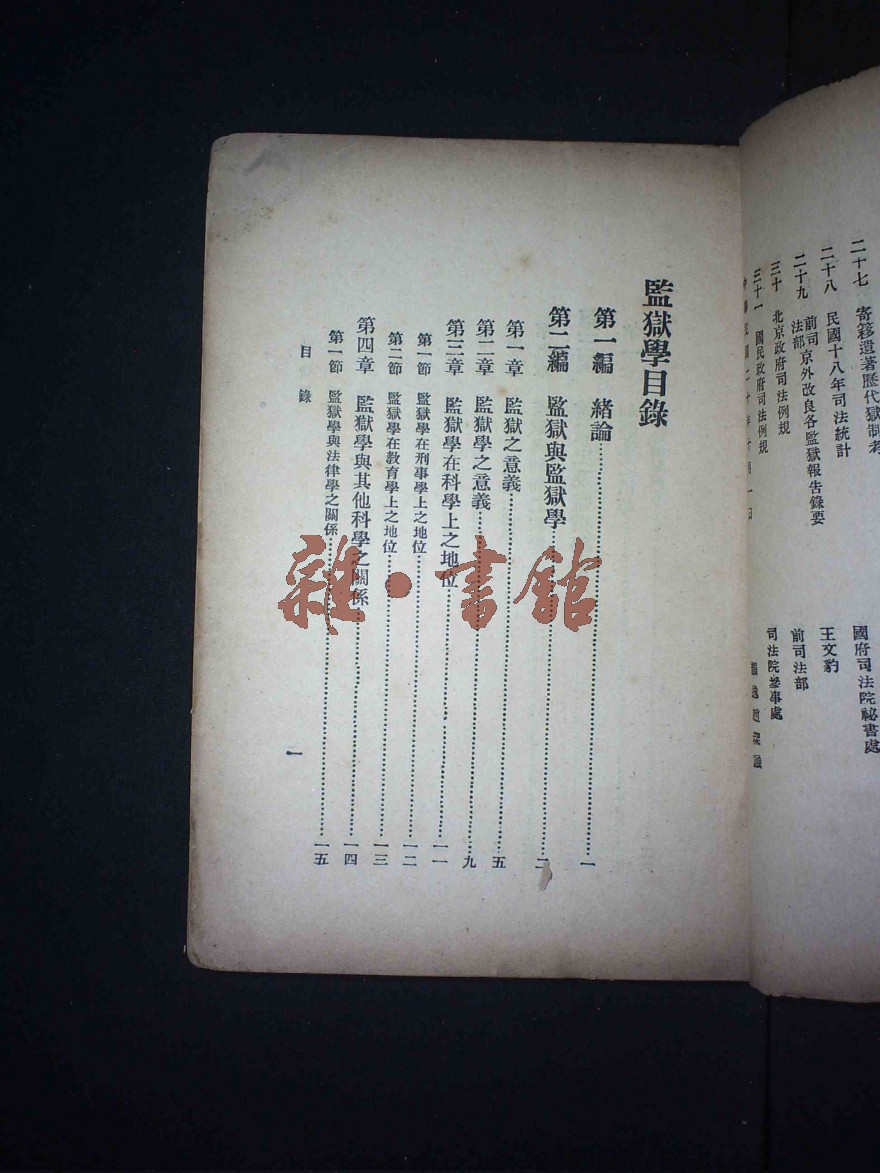 二十七 寄簃遺著歷代獄制考
二十八 民國十八年司法統計 國府司法院祕書處
二十九 前司法部京外改良各監獄報告錄要 王文豹
三十 北京政府司法例規 前司法部
三十一 國民政府司法例規 司法院參事處
監獄學目錄
第一編 緒論……一
第二編 監獄與監獄學……二
第一章 監獄之意義……五
第二章 監獄學之意義……九
第三章 監獄學在科學上之地位……一一
第一節 監獄學在刑事學上之地位……一二
第二節 監獄學在教育學上之地位……一三
第四章 監獄學與其他科學之關係……一四
第一節 監獄學與法律學之關係……一五
目錄
一
雜·書館